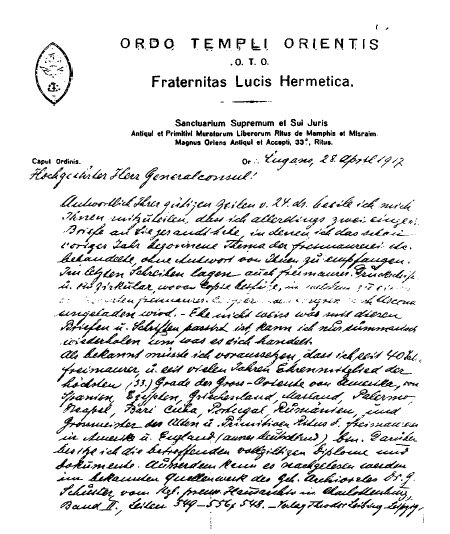 ORDO TEMPLI ORIENTIS
.O.T.O.
Fraternitas Lucis Hermetica.
Sanctuarium Supremum et Sui Juris
Antiqui et Primitivi Muratorum Liberorum Ritus de Memphis et Misraim.
Magnus Oriens Antiqui et Accepti, 33°, Ritus.
Caput Ordinis. Or∴ Lugano, 28 April 1917
Hochgeehrter Herr Generalconsul!
Antwortlich Ihrer gütigen Zeilen v. 24. ds. beeile ich mich
Ihnen mitzuteilen, dass ich allerdings zwei
Briefe an Sie gesandt habe, in denen ich das schon
voriges Jahr begonnene Thema der Freimaurerei
behandelte, ohne Antwort von Ihnen zu empfangen.
Im letzten Schreiben lagen auch freimaurer.
u. ein Zirkular, wovon Copie
eingeladen wird. – Ehe ich weiss was mit diesen
Briefen u. Schriften passirt ist, kann ich nur summarisch
wiederholen um was es sich handelt.
Als bekannt müsste ich voraussetzen, dass ich seit 40
Freimaurer u. seit vielen Jahren Ehrenmitglied der
höchsten (33.) Grade des Gross-Oriente von Amerika, von
Spanien, Egypten, Griechenland, Mailand, Palermo,
Neapel, Bari, Cuba, Portugal, Rumänien, und
Grossmeister des Alten u. Primitiven Ritus d. Freimaurer
in Amerika u. England (ausser Deutschland) bin. Darüber
besitze ich die betreffenden vollgiltigen Diplome und
Dokumente. Ausserdem kann es nachgelesen werden
im bekannten Quellenwerk des Geh. Archivrates Dr. G.
Schuster, vom Kgl. preuss. Hausarchiv in Charlottenburg,
Band II., Seiten 549–556 u. 548. – Verlag Theodor Leibing, Leipzig,